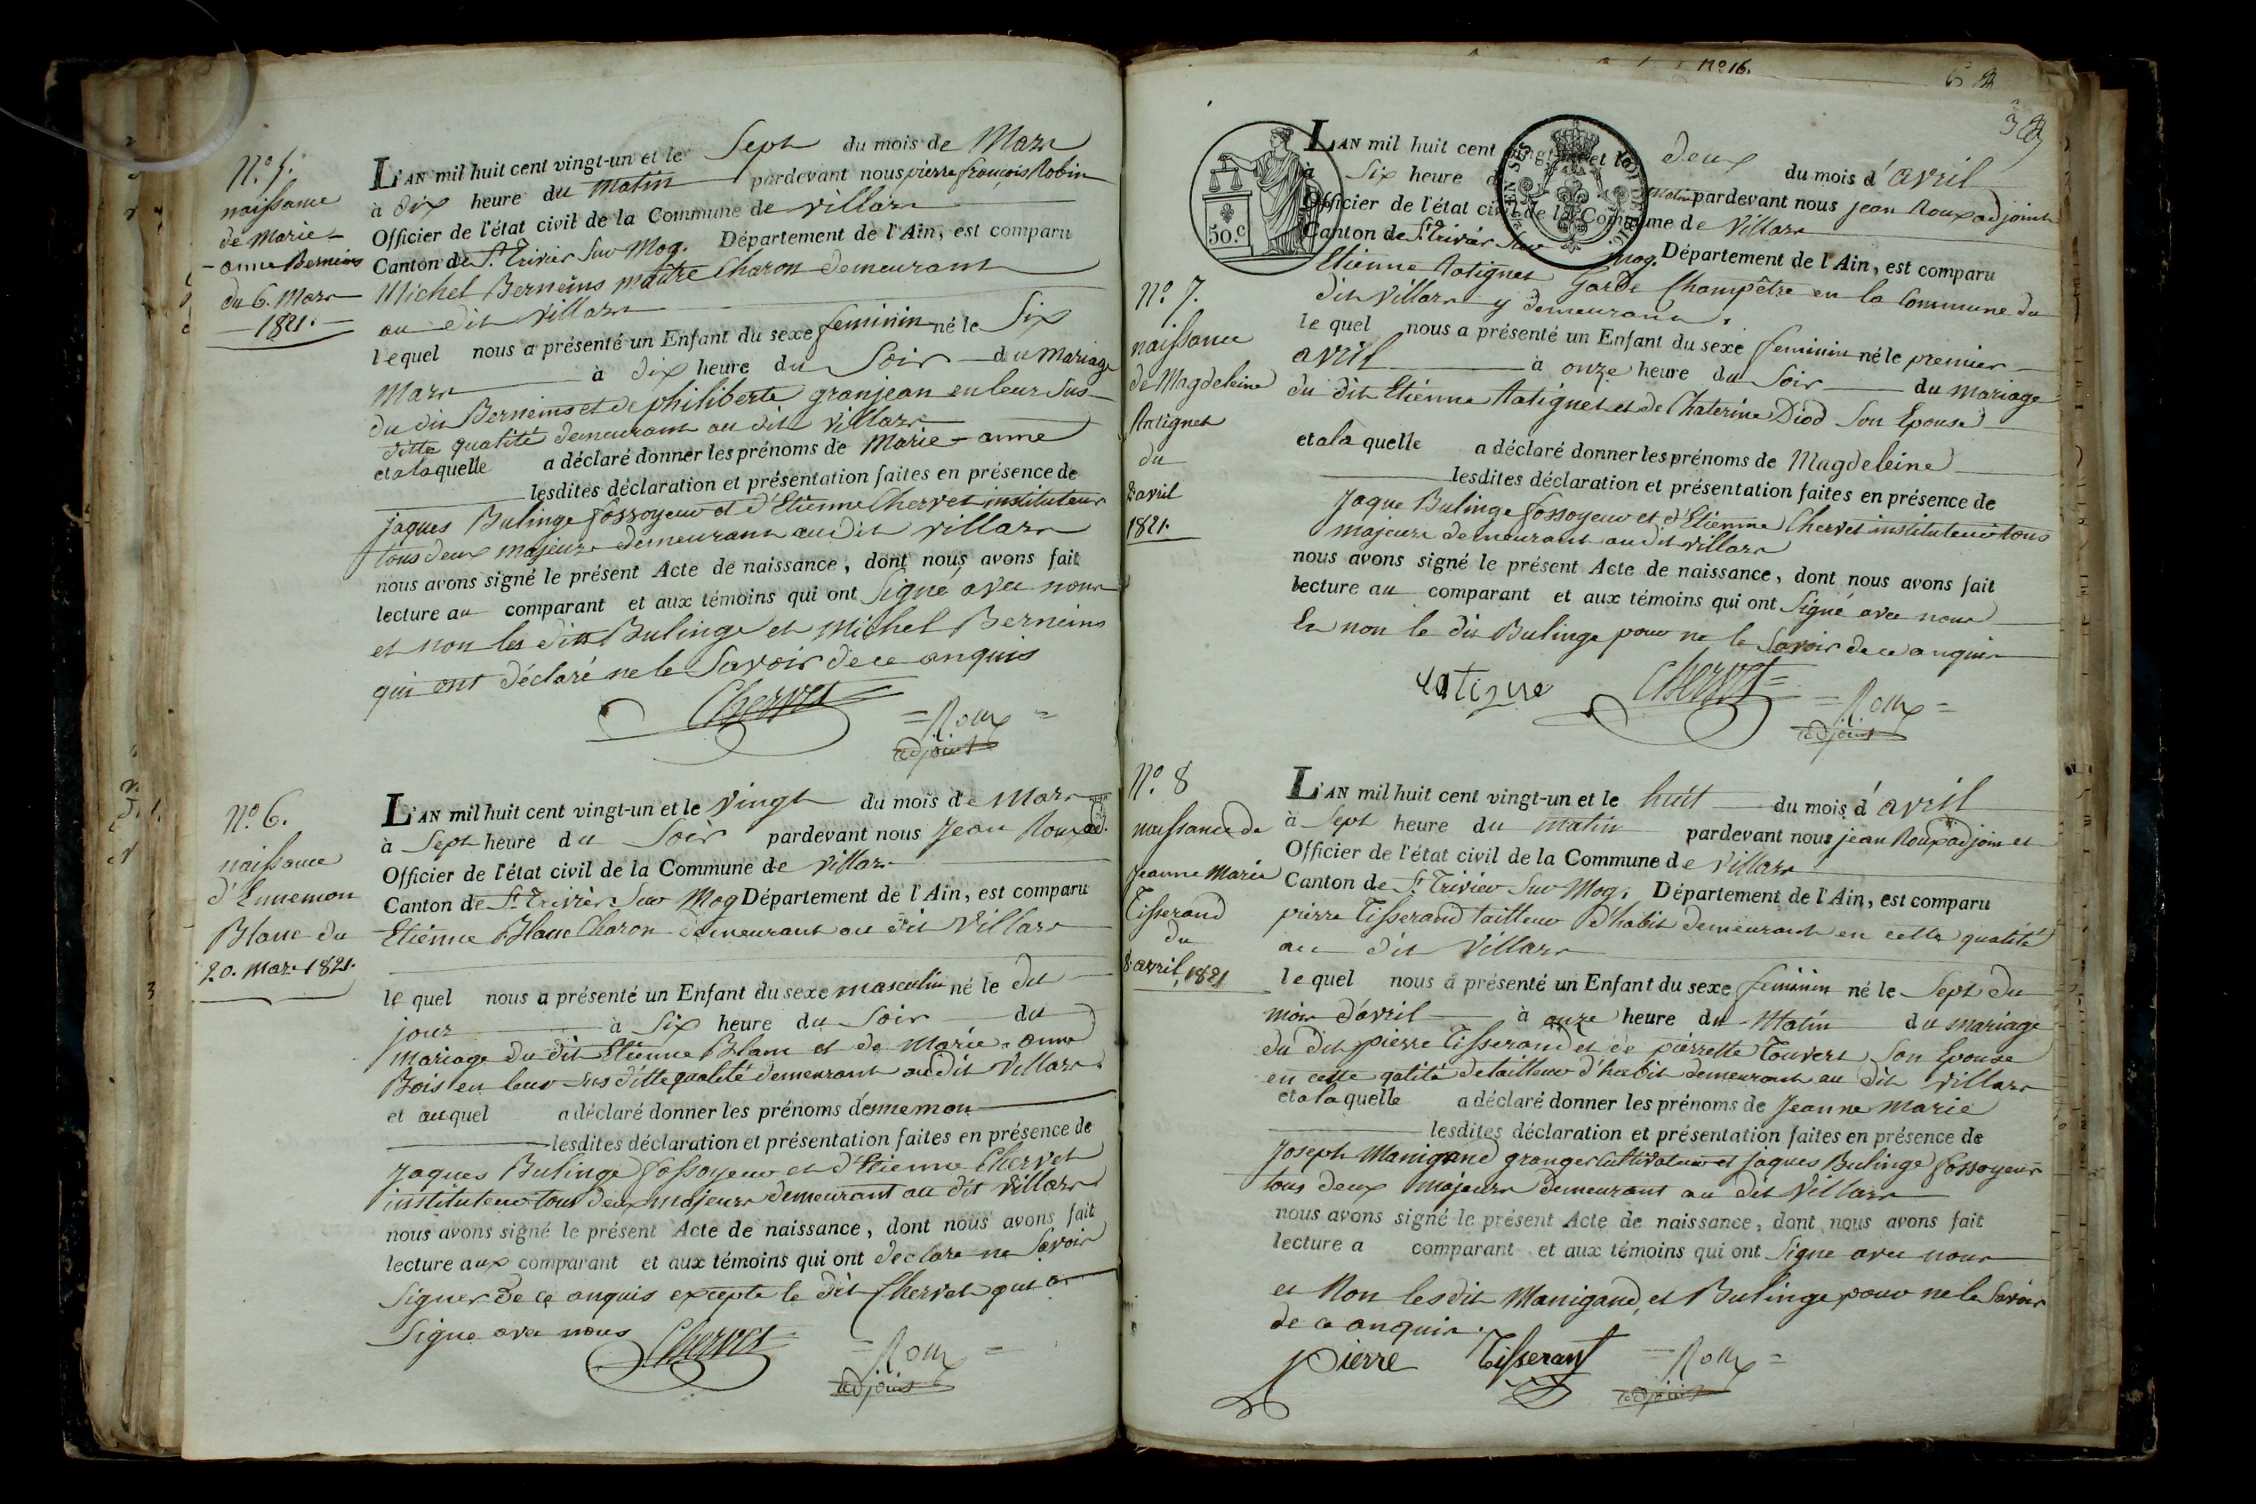 N.° 5.
naissance
de Marie-
anne Berneins
du 6. Mars
1821.
L'AN mil huit cent vingt-un et le Sept du mois de Mars
à dix heure du matin pardevant nous pierre françois Robin
Officier de l'état civil de la Commune de villars
Canton de St. Trivier Sur Mog. Département de l'Ain, est comparu
Michel Berneins maitre Charon demeurant
au dit villars
lequel nous a présenté un Enfant du sexe feminin né le Six
Mars à dix heure du Soir du mariage
du dit Berneins et de philiberte granjean en leur Sus-
ditte qualité demeurant au dit villars
et a laquelle a déclaré donner les prénoms de Marie-anne
lesdites déclaration et présentation faites en présence de
jaques Bulinge fossoyeur et d'Etienne Chervet instituteur
tous deux majeurs demeurant au dit villars
nous avons signé le présent Acte de naissance, dont nous avons fait
lecture au comparant et aux témoins qui ont Signé avec nous
et non les dits Bulinge et Michel Berneins
qui ont déclaré ne le Savoir de ce anquis
Chervet
= Roux =
adjoint
N.° 6.
naissance
d'Ennemon
Blanc du
20. Mars 1821.
L'AN mil huit cent vingt-un et le vingt du mois de Mars
à Sept heure du Soir pardevant nous Jean Roux ad.
Officier de l'état civil de la Commune de villars
Canton de St. Trivier Sur Mog Département de l'Ain, est comparu
Etienne Blanc Charon demeurant au dit Villars
le quel nous a présenté un Enfant du sexe masculin né le dit
jour à Six heure du Soir du
mariage du dit Etienne Blanc et de Marie-anne
Bois en leur sus ditte qualité demeurant au dit Villars
et auquel a déclaré donner les prénoms d'ennemon
lesdites déclaration et présentation faites en présence de
jaques Bulinge fossoyeur et d'Etienne Chervet
instituteur tous deux majeurs demeurant au dit Villars
nous avons signé le présent Acte de naissance, dont nous avons fait
lecture aux comparant et aux témoins qui ont declare ne Savoir
Signer de ce anquis excepte le dit Chervet qui a
Signe avec nous
Chervet
= Roux =
adjoint
n° 16.
50.c
L'AN mil huit cent vingt-un et le deux du mois d'avril
à Six heure du matin pardevant nous jean Roux adjoint
Officier de l'état civil de la Commune de Villars
Canton de St. Trivier Sur Mog. Département de l'Ain, est comparu
Etienne Ratignet Garde Champêtre en la Commune du
dit Villars y demeurant.
N.° 7.
naissance
de Magdeleine
Ratignet
du
2 avril
1821.
le quel nous a présenté un Enfant du sexe feminin né le premier
avril à onze heure du Soir du mariage
du dit Etienne Ratignet et de Chaterine Diod Son Epouse
et a la quelle a déclaré donner les prénoms de Magdeleine
lesdites déclaration et présentation faites en présence de
Jaque Bulinge fossoyeur et d'Etienne Chervet instituteur tous
majeurs demeurant au dit villars
nous avons signé le présent Acte de naissance, dont nous avons fait
lecture au comparant et aux témoins qui ont Signé avec nous
Et non le dit Bulinge pour ne le Savoir de ce anquis
ratigne
Chervet
= Roux =
adjoint
N.° 8
naissance de
Jeanne Marie
Tisserand
du
8 avril, 1821
L'AN mil huit cent vingt-un et le huit du mois d'avril
à Sept heure du matin pardevant nous jean Roux adjoint
Officier de l'état civil de la Commune de Villars
Canton de St. Trivier Sur Mog. Département de l'Ain, est comparu
pierre Tisserand tailleur d'habit demeurant en cette qualité
au dit Villars
le quel nous a présenté un Enfant du sexe feminin né le Sept du
mois d'avril à onze heure du Matin du mariage
du dit pierre Tisserand et de pierrette Touvert Son Epouse
en cette qalité de tailleur d'habit demeurant au dit villars
et a la quelle a déclaré donner les prénoms de Jeanne Marie
lesdites déclaration et présentation faites en présence de
Joseph Manigand granger Cultivateur et jaques Bulinge fossoyeur
tous deux majeurs demeurant au dit Villars
nous avons signé le présent Acte de naissance, dont nous avons fait
lecture a comparant et aux témoins qui ont Signe avec nous
et Non les dit Manigand, et Bulinge pour ne le Savoir
de ce anquis.
pierre Tisserant
= Roux =
adjoint